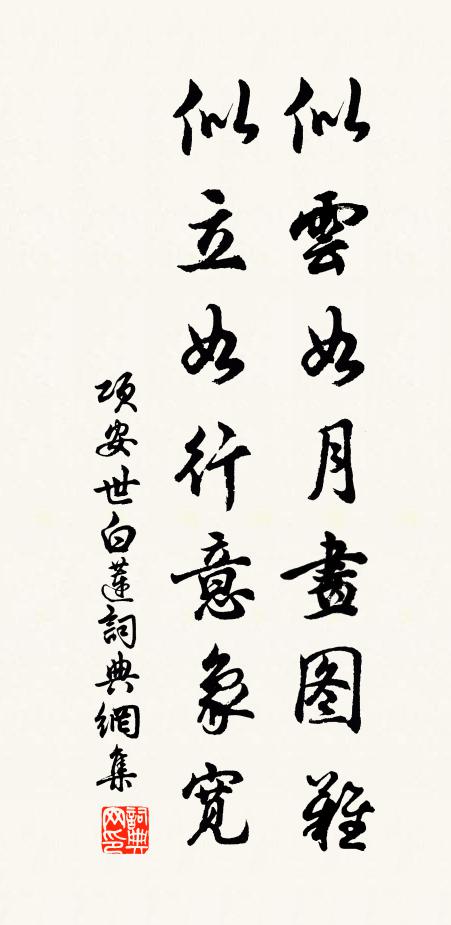 似雲如月畫图難
似立如行意象寬
项安世白蓮詞典網集
詞典網印